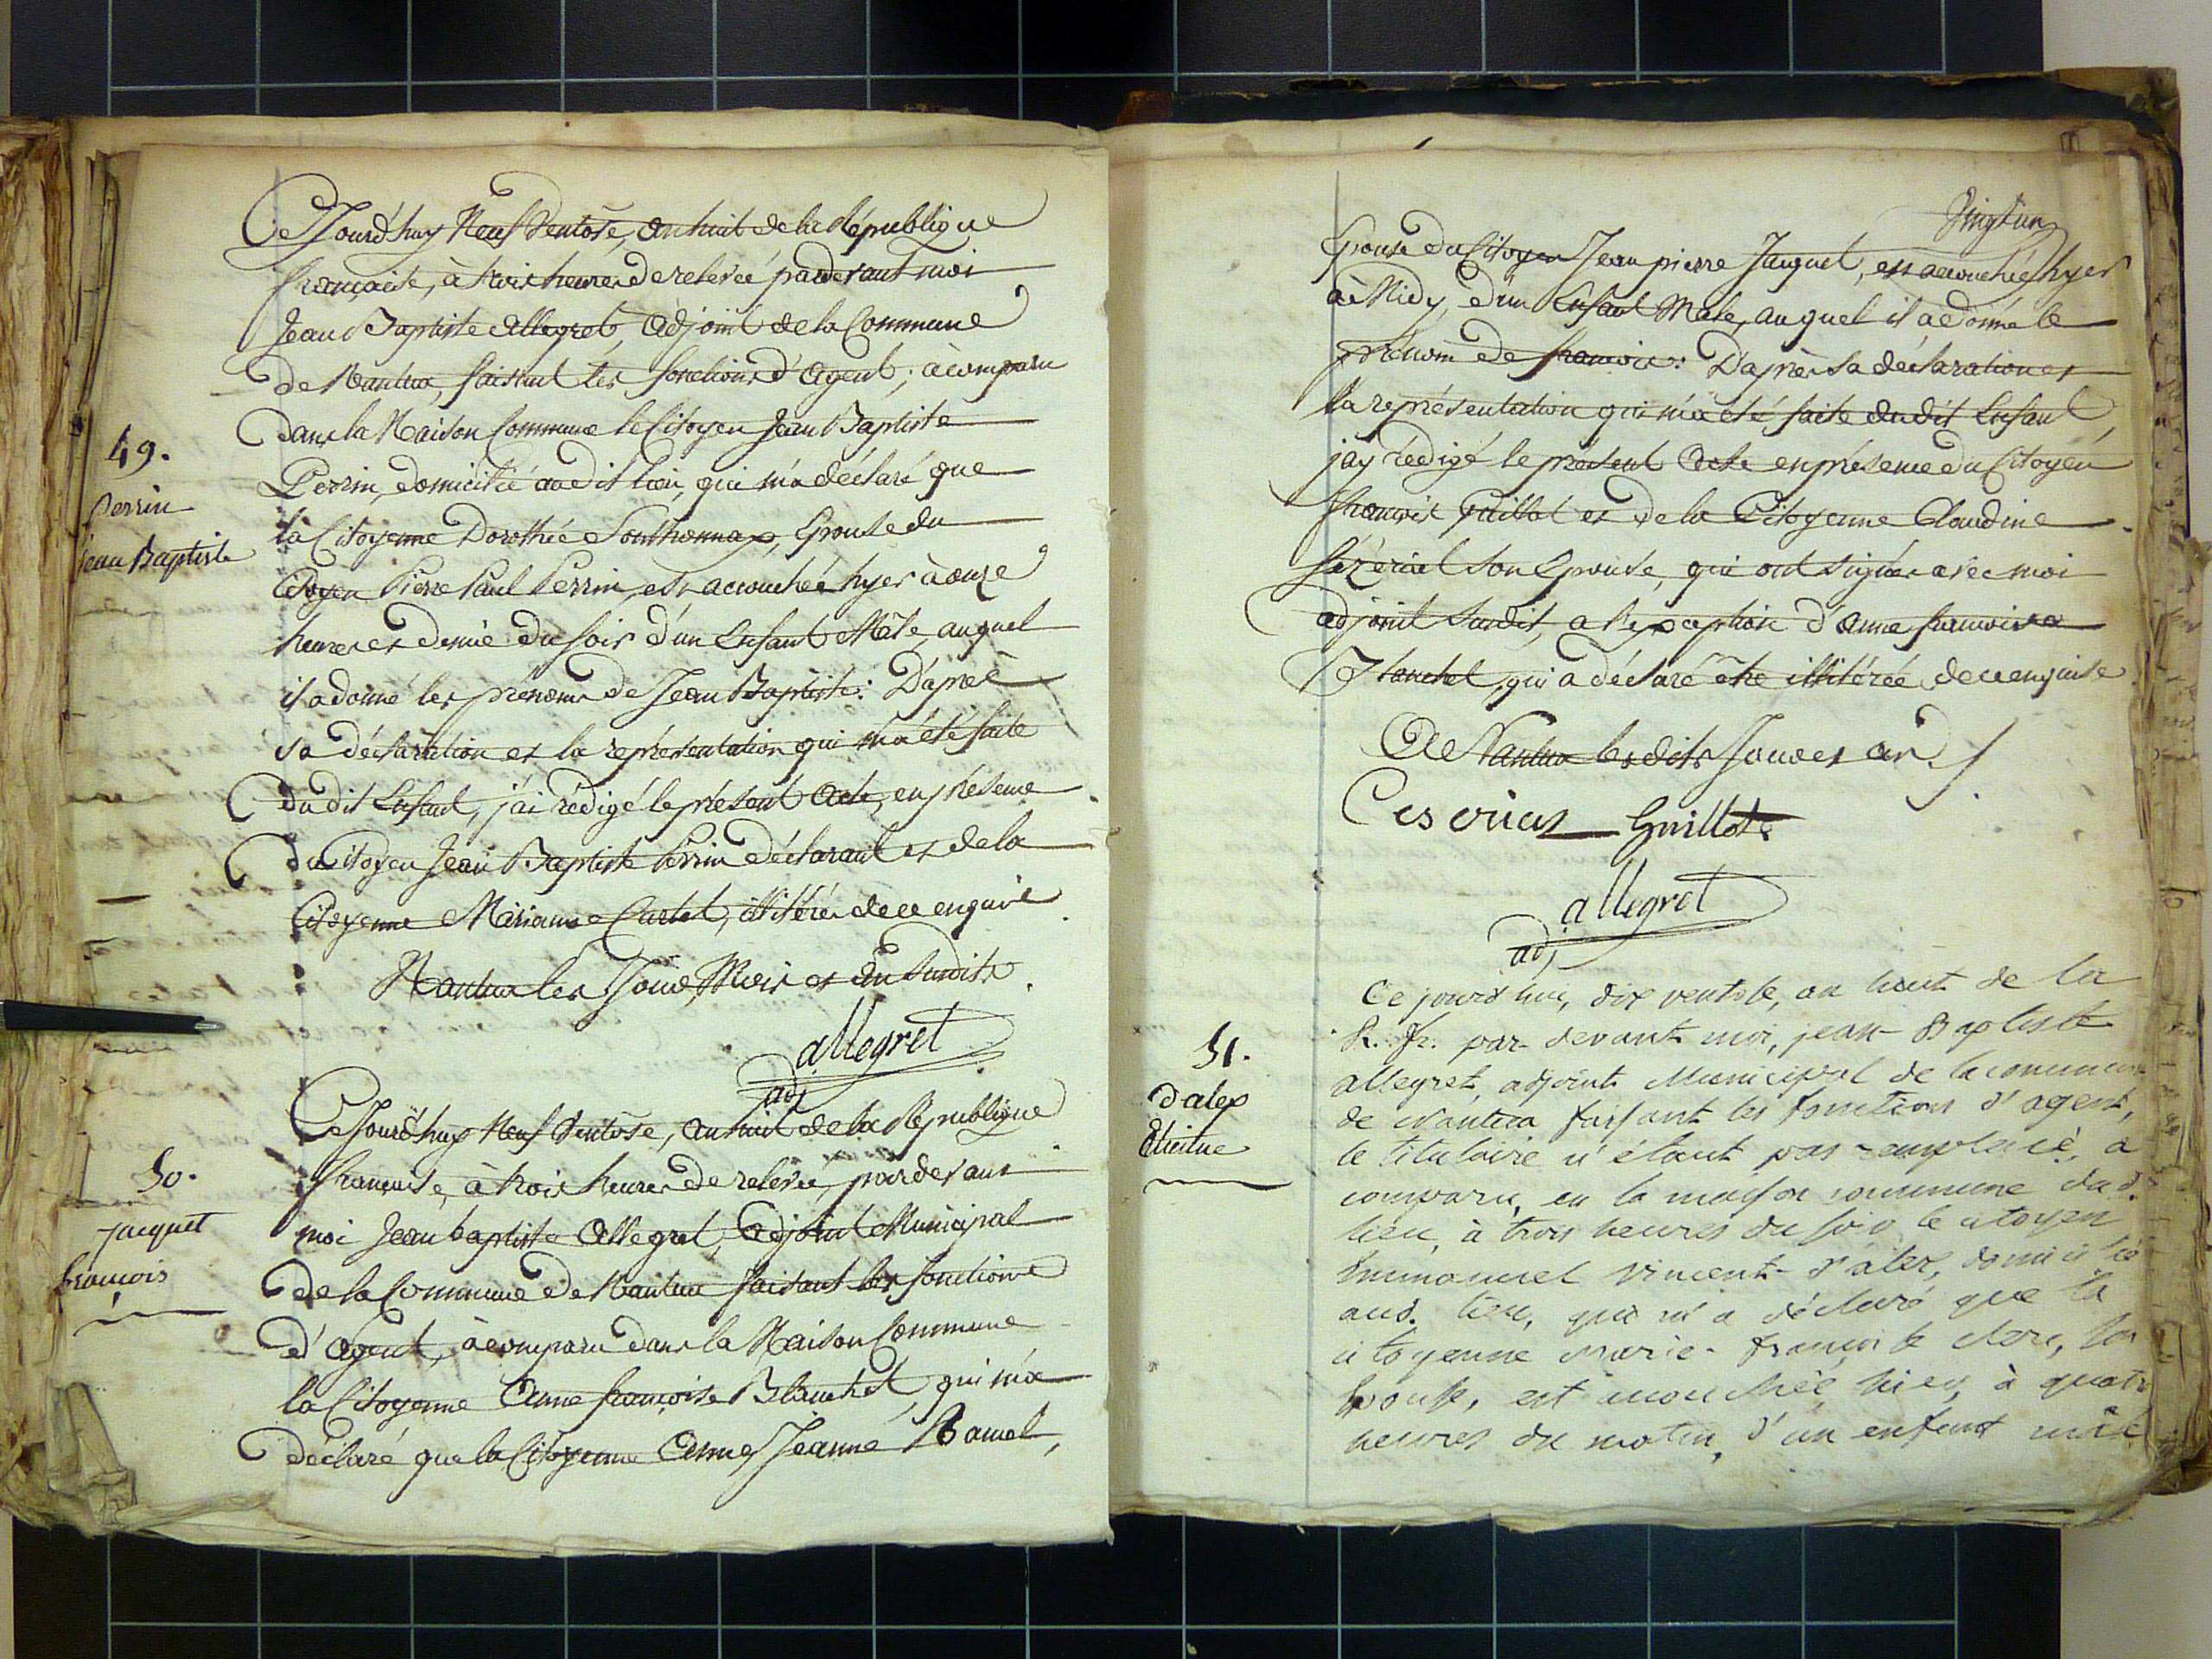 CeJourd'huy Neuf Ventôse, an huit de la République
française, à trois heures de relevée pardevant moi
Jean Baptiste Allegret, Adjoint de la Commune
de Nantua, faisant les fonctions d'Agent, à comparu
dans la Maison Commune le Citoyen Jean Baptiste
49.
Perrin
jean Baptiste
Perrin, domicilié audit lieu, qui m'a déclaré que
la Citoyenne Dorothée Sonthonnax, Epouse du
Citoyen Pierre Paul Perrin, est accouchée hyer à onze
heures et demie du soir d'un Enfant Mâle, auquel
il a donné les prénoms de Jean Baptiste: D'après
sa déclaration et la représentation qui m'a été faite
dudit Enfant, j'ai rédigé le présent Acte, en présence
du Citoyen Jean Baptiste Perrin déclarant et de la
Citoyenne Marianne Cartet, illitérés de ce enquis
Nantua les Jour, Mois et An susdits.
allegret
adj
CeJourd'huy Neuf Ventôse, an huit de la République
50.
jacquet
françois
française, à trois heures de relevée, pardevant
moi Jean baptiste Allegret, Adjoint Municipal
de la Commune de Nantua faisant les fonctions
d'Agent, à comparu dans la Maison Commune
la Citoyenne Anne françoise Blanchet, qui m'a
déclaré que la Citoyenne Anne Jeanne Ramel,
Vingt un
Epouse du Citoyen Jean pierre Jacquet, est accouchée hyer
à Midy, d'un Enfant Mâle, auquel il a donné le
prénom de françois: D'après sa déclaration et
la représentation qui m'a été faite dudit Enfant,
j'ay rédigé le présent Acte en présence du Citoyen
françois Guillot et de la Citoyenne Claudine
Sézériat son Epouse, qui ont signés avec moi
adjoint susdit, a l'exception d'Anne françoise
Blanchet, qui a déclaré être illitérée de ce enquise
A Nantua lesdits Jour et an
Guillot
allegret
adj
Ce jourd'hui, dix ventose, an huit de la
R. fr. par devant moi, jean Baptiste
51.
dalex
Etienne
allegret, adjoint Municipal de la commune
de Nantua faisant les fonctions d'agent,
le titulaire n'étant pas remplacé, a
comparu, en la maison commune dud.
lieu, à trois heures du soir le citoyen
Emmanuel vincent d'alex, domicilié
aud. lieu, qui m'a déclaré que la
citoyenne Marie-françoise clerc, son
Epouse, est accouchée, hier, à quatre
heures du matin, d'un enfant mâle